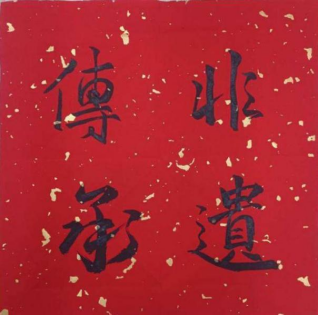 非遺
傳承